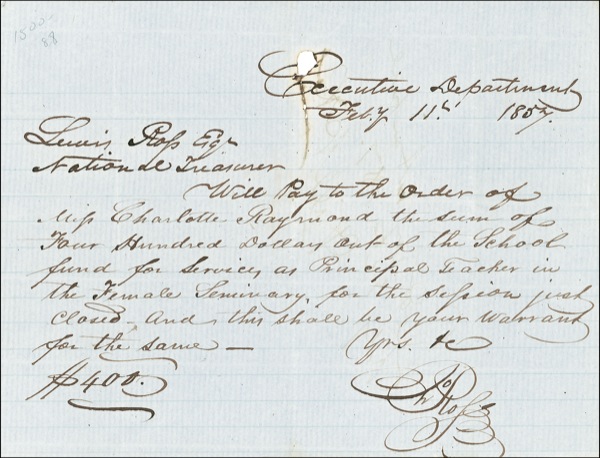 1500-
88
Executive Department
Feb.y 11th 1857.
Lewis Ross Esqr
National Treasurer
Will Pay to the order of
Miss Charlotte Raymond the sum of
Four Hundred Dollars out of the School
fund for Services as Principal Teacher in
the Female Seminary, for the session just
closed, And this shall be your Warrant
for the same —
Yrs. &c
$400.
Jno Ross